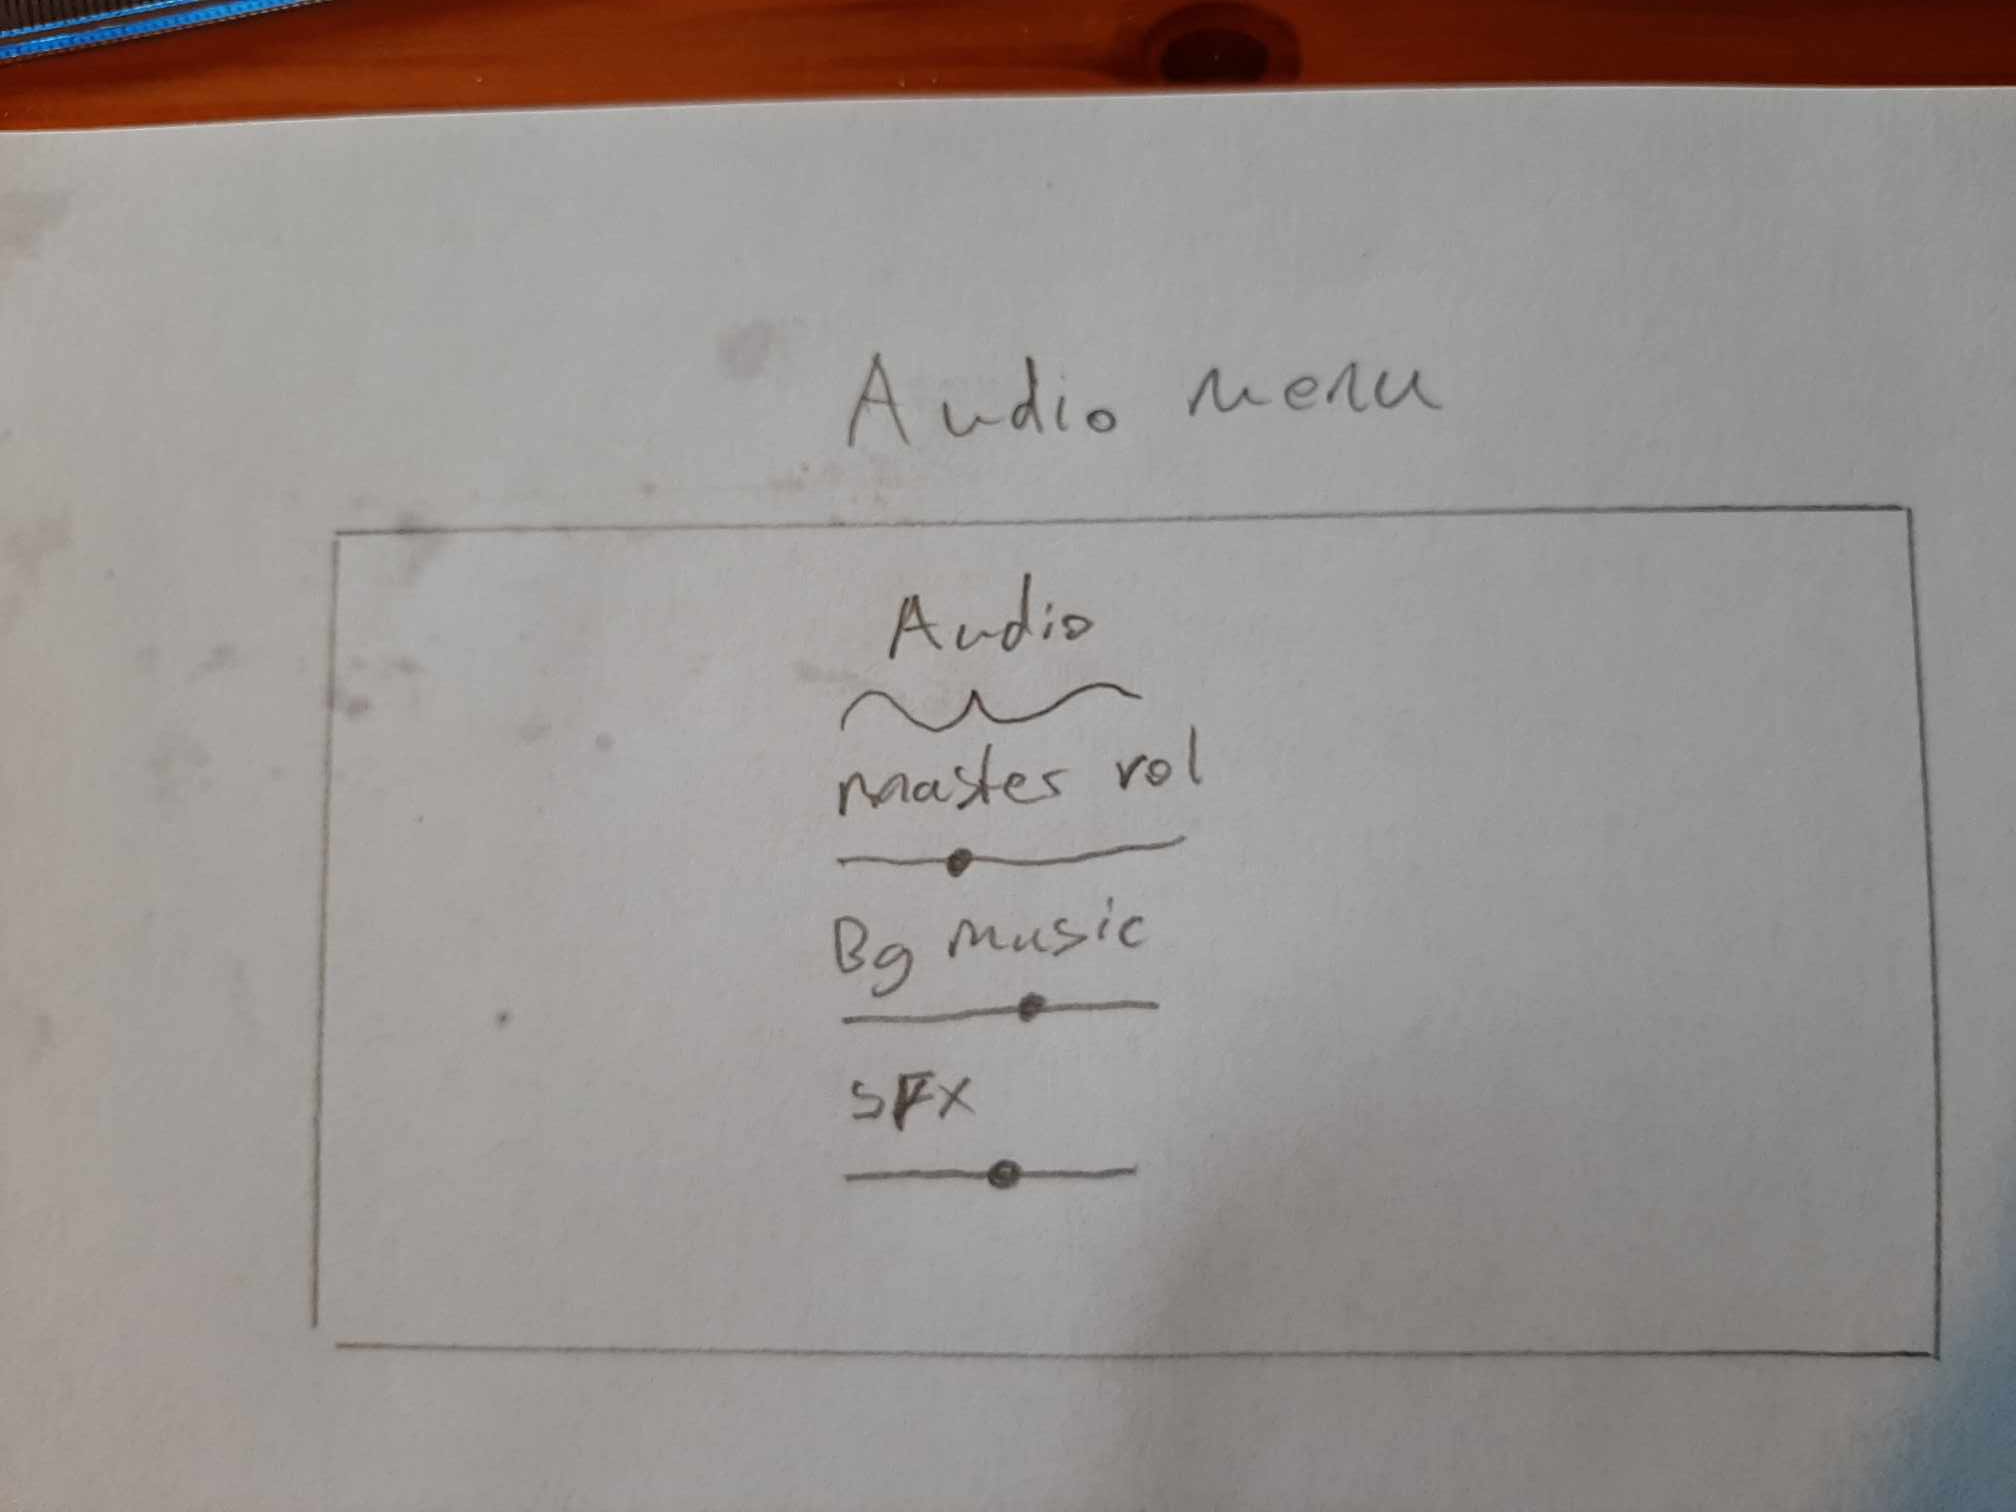 Audio menu
Audio
master vol
Bg music
SFX